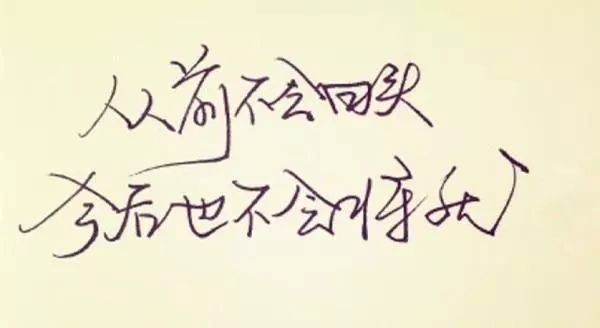 从前不会回头
今后也不会将就